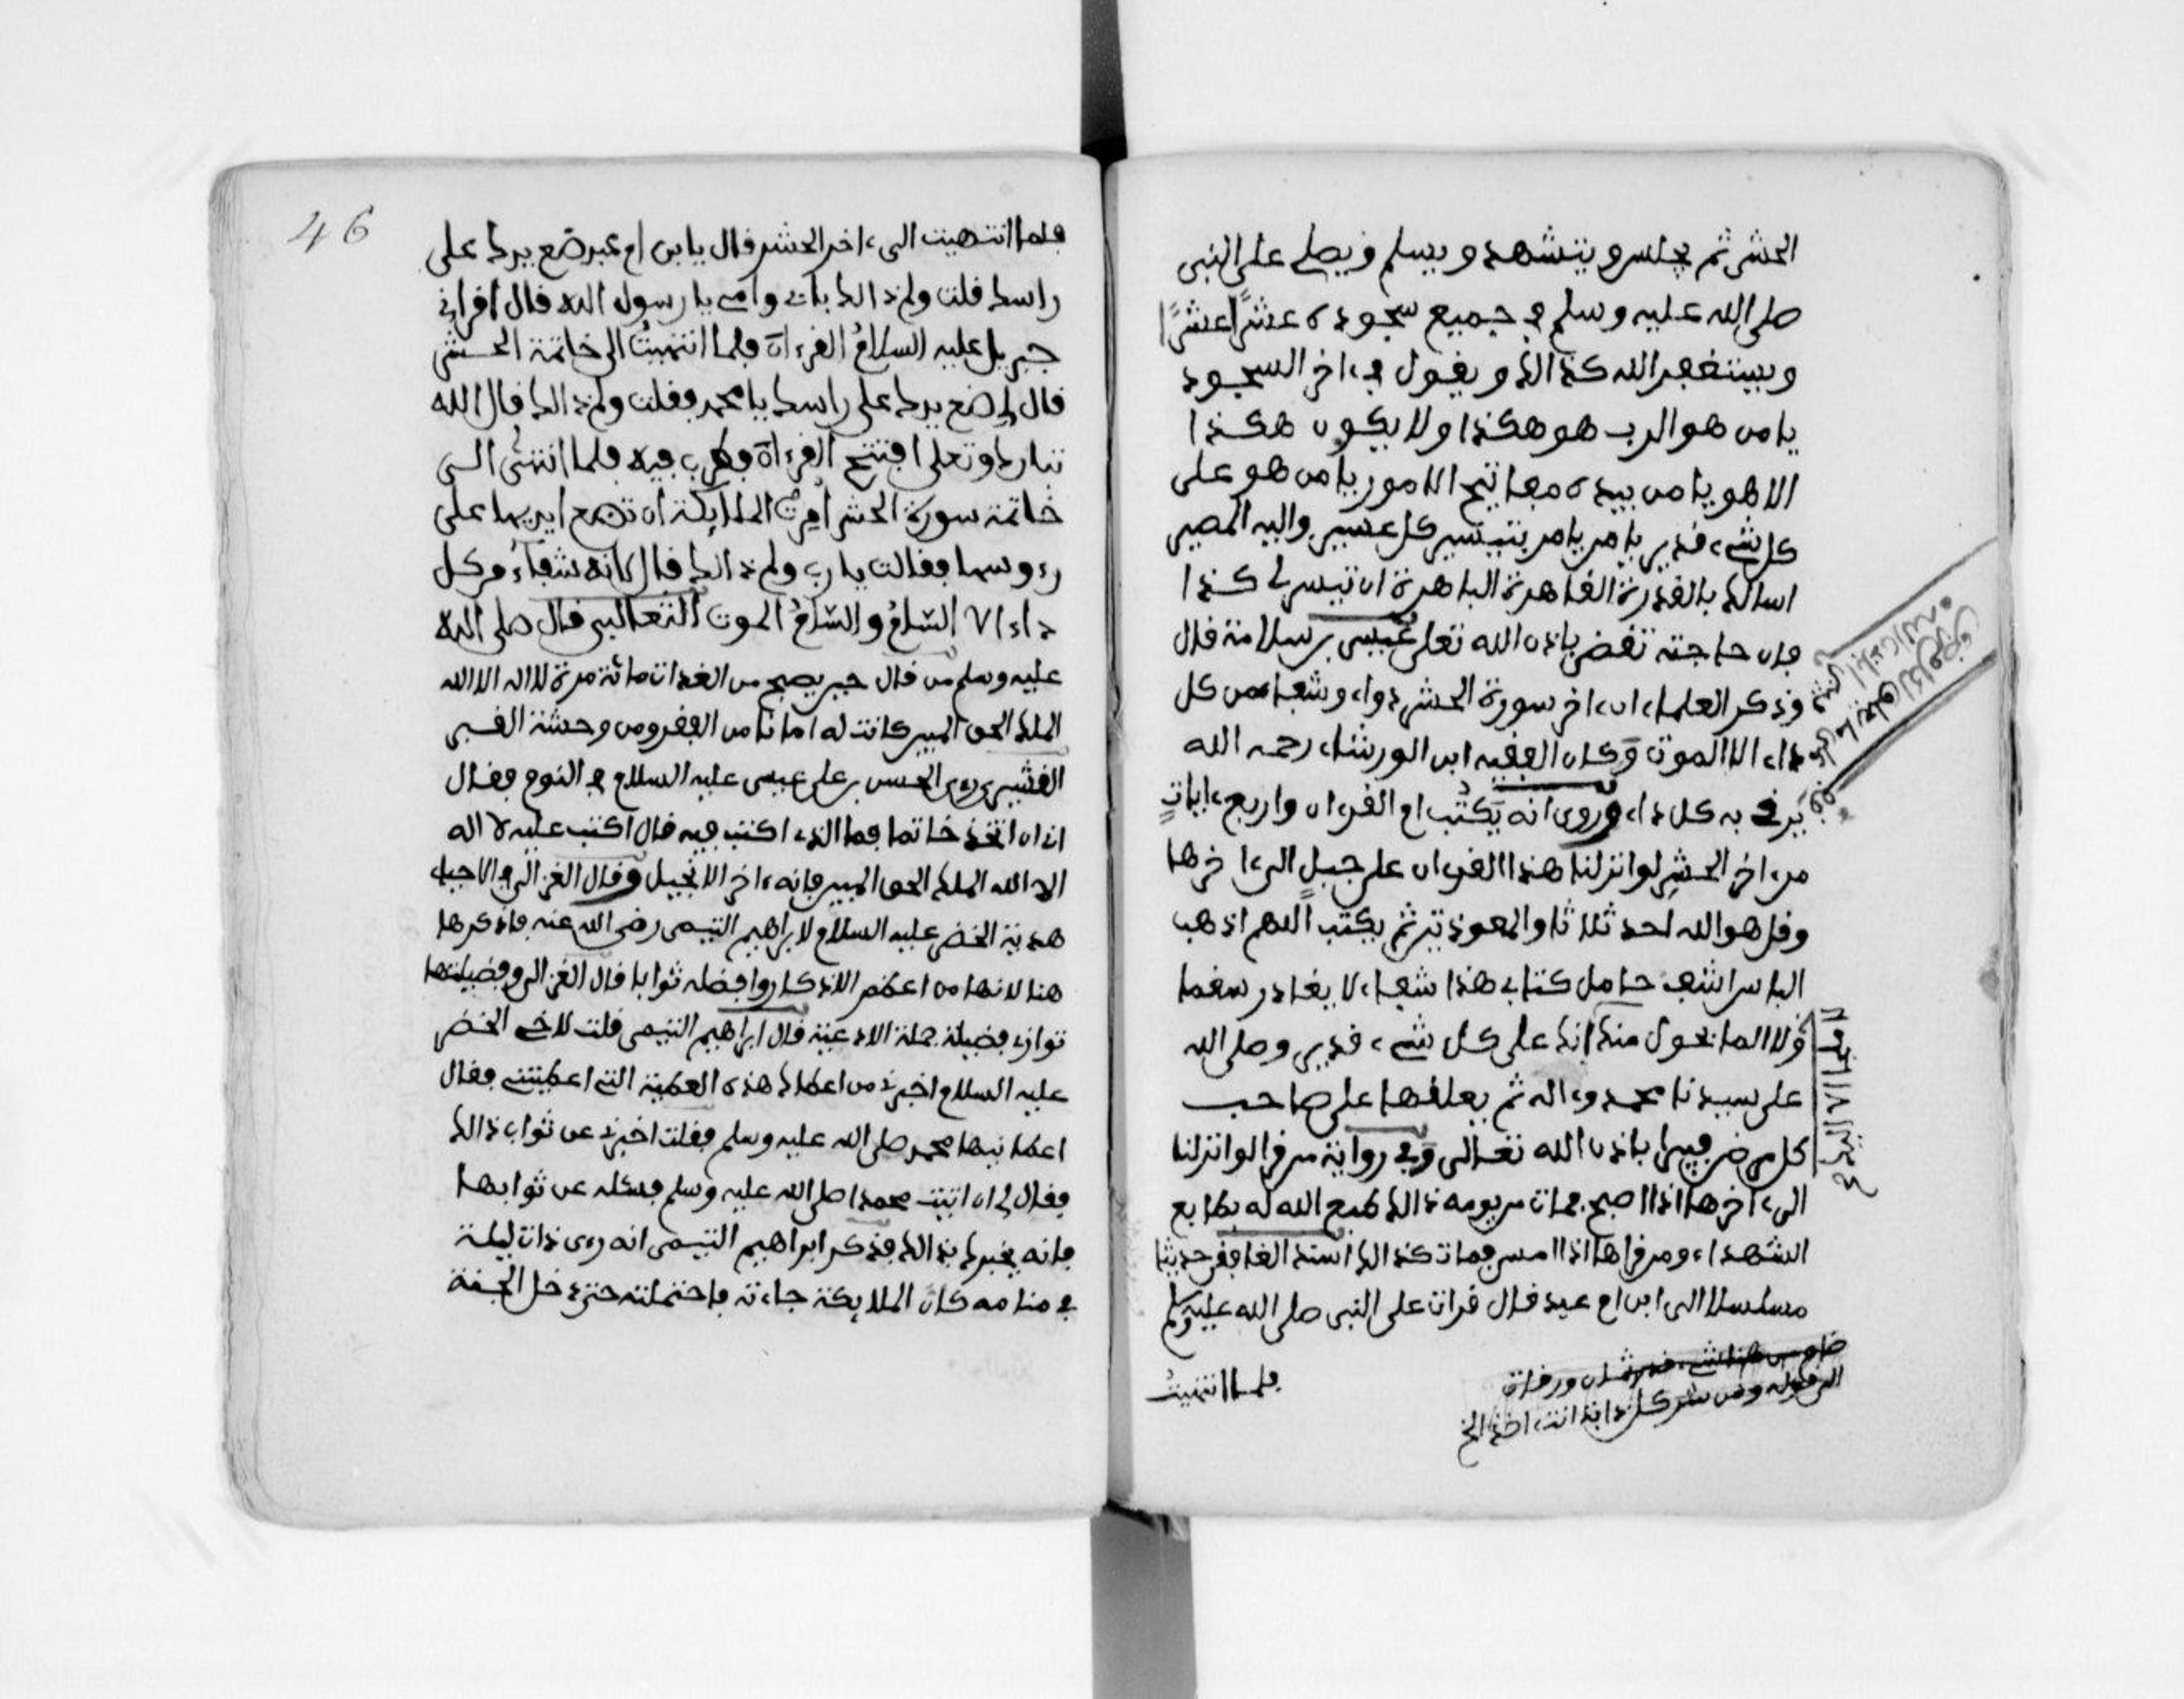 الحشر ثم يجلس ويتشهد ويسلم ويصلي على النبي
صلى الله عليه وسلم في جميع سجوده عشرًا عشرًا
ويستغفر الله كذالك ويقول في ءاخر السجود
يا من هو الرب هو هكذا ولا يكون هكذا
الا هو يا من بيده مفاتيح الامور يا من هو على
كل شيء قدير يا من يامر بتيسير كل عسير واليه المصير
اسالك بالقدرة القاهرة الباهرة ان تيسر لي كذا
فان حاجته تقضى باذن الله تعلى عيسى بن سلامة قال
وذكر العلماء ان ءاخر سورة الحشر دواء وشفاء من كل
داء الا الموت وكان الفقيه ابن الورشاء رحمه الله
يرقي به كل داء وروى انه يكتب ام القرءان واربع ءايات
من ءاخر الحشر لو انزلنا هذا القرءان على جبل الى ءاخرها
وقل هو الله احد ثلاثا والمعوذتين ثم يكتب اللهم اذهب
الباس اشف حامل كتابي هذا شفاء لا يغادر سقما
ولا الما بحول منك انك على كل شيء قدير وصلى الله
على سيدنا محمد وءاله ثم يعلقها على صاحب
كل مرض فيبرا باذن الله تعالى وفي رواية من قرا لو انزلنا
الى ءاخرها اذا اصبح فمات من يومه ذالك طبع الله له بطابع
الشهداء ومن قراها اذا امسى فمات كذالك اسند الغافقي حديثا
مسلسلا الى ابن ام عبد قال قرات على النبي صلى الله عليه وسلم
فلما انتهيت
46
فلما انتهيت الى ءاخر الحشر قال يا بن ام عبد ضع يدك على
راسك قلت ولم ذالك بابي وامي يا رسول الله قال اقراني
جبريل عليه السلام القرءان فلما انتهيتُ الى خاتمة الحشر
قال لي ضع يدك على راسك يا محمد فقلت ولم ذالك قال الله
تبارك وتعلى افتتح القرءان فضرب فيه فلما انتهى الى
خاتمة سورة الحشر امرت الملايكة ان تضع ايديها على
رءوسها فقالت يا رب ولم ذالك قال لانه شفاء من كل
داء الا السام والسام الموت الثعالبي قال صلى الله
عليه وسلم من قال حين يصبح من الغدات مائة مرة لا اله الا الله
الملك الحق المبين كانت له امانا من الفقر ومن وحشة القبر
القشيري رءى الحسن بن علي عيسى عليه السلام في النوم فقال
اني ان اتخذ خاتما فما الذي اكتب فيه قال اكتب عليه لا اله
الا الله الملك الحق المبين فانه ءاخر الانجيل وقال الغزالي في الاحياء
هدية الخضر عليه السلام لابراهيم التيمي رضي الله عنه فاذكرها
هنا لانها من اعظم الاذكار وافضله ثوابا قال الغزالي وفضيلتها
توازي فضيلة جملة الادعية قال ابراهيم التيمي قلت لاخي الخضر
عليه السلام اخبرني من اعطاك هذه العطية التي اعطيتني فقال
اعطانيها محمد صلى الله عليه وسلم فقلت اخبرني عن ثواب ذالك
فقال لي ان اتيت محمدا صلى الله عليه وسلم فسئله عن ثوابها
فانه يخبرك بذالك فذكر ابراهيم التيمي انه رءى ذات ليلة
في منامه كان الملايكة جاءته فاحتملته حتى دخل الجنة